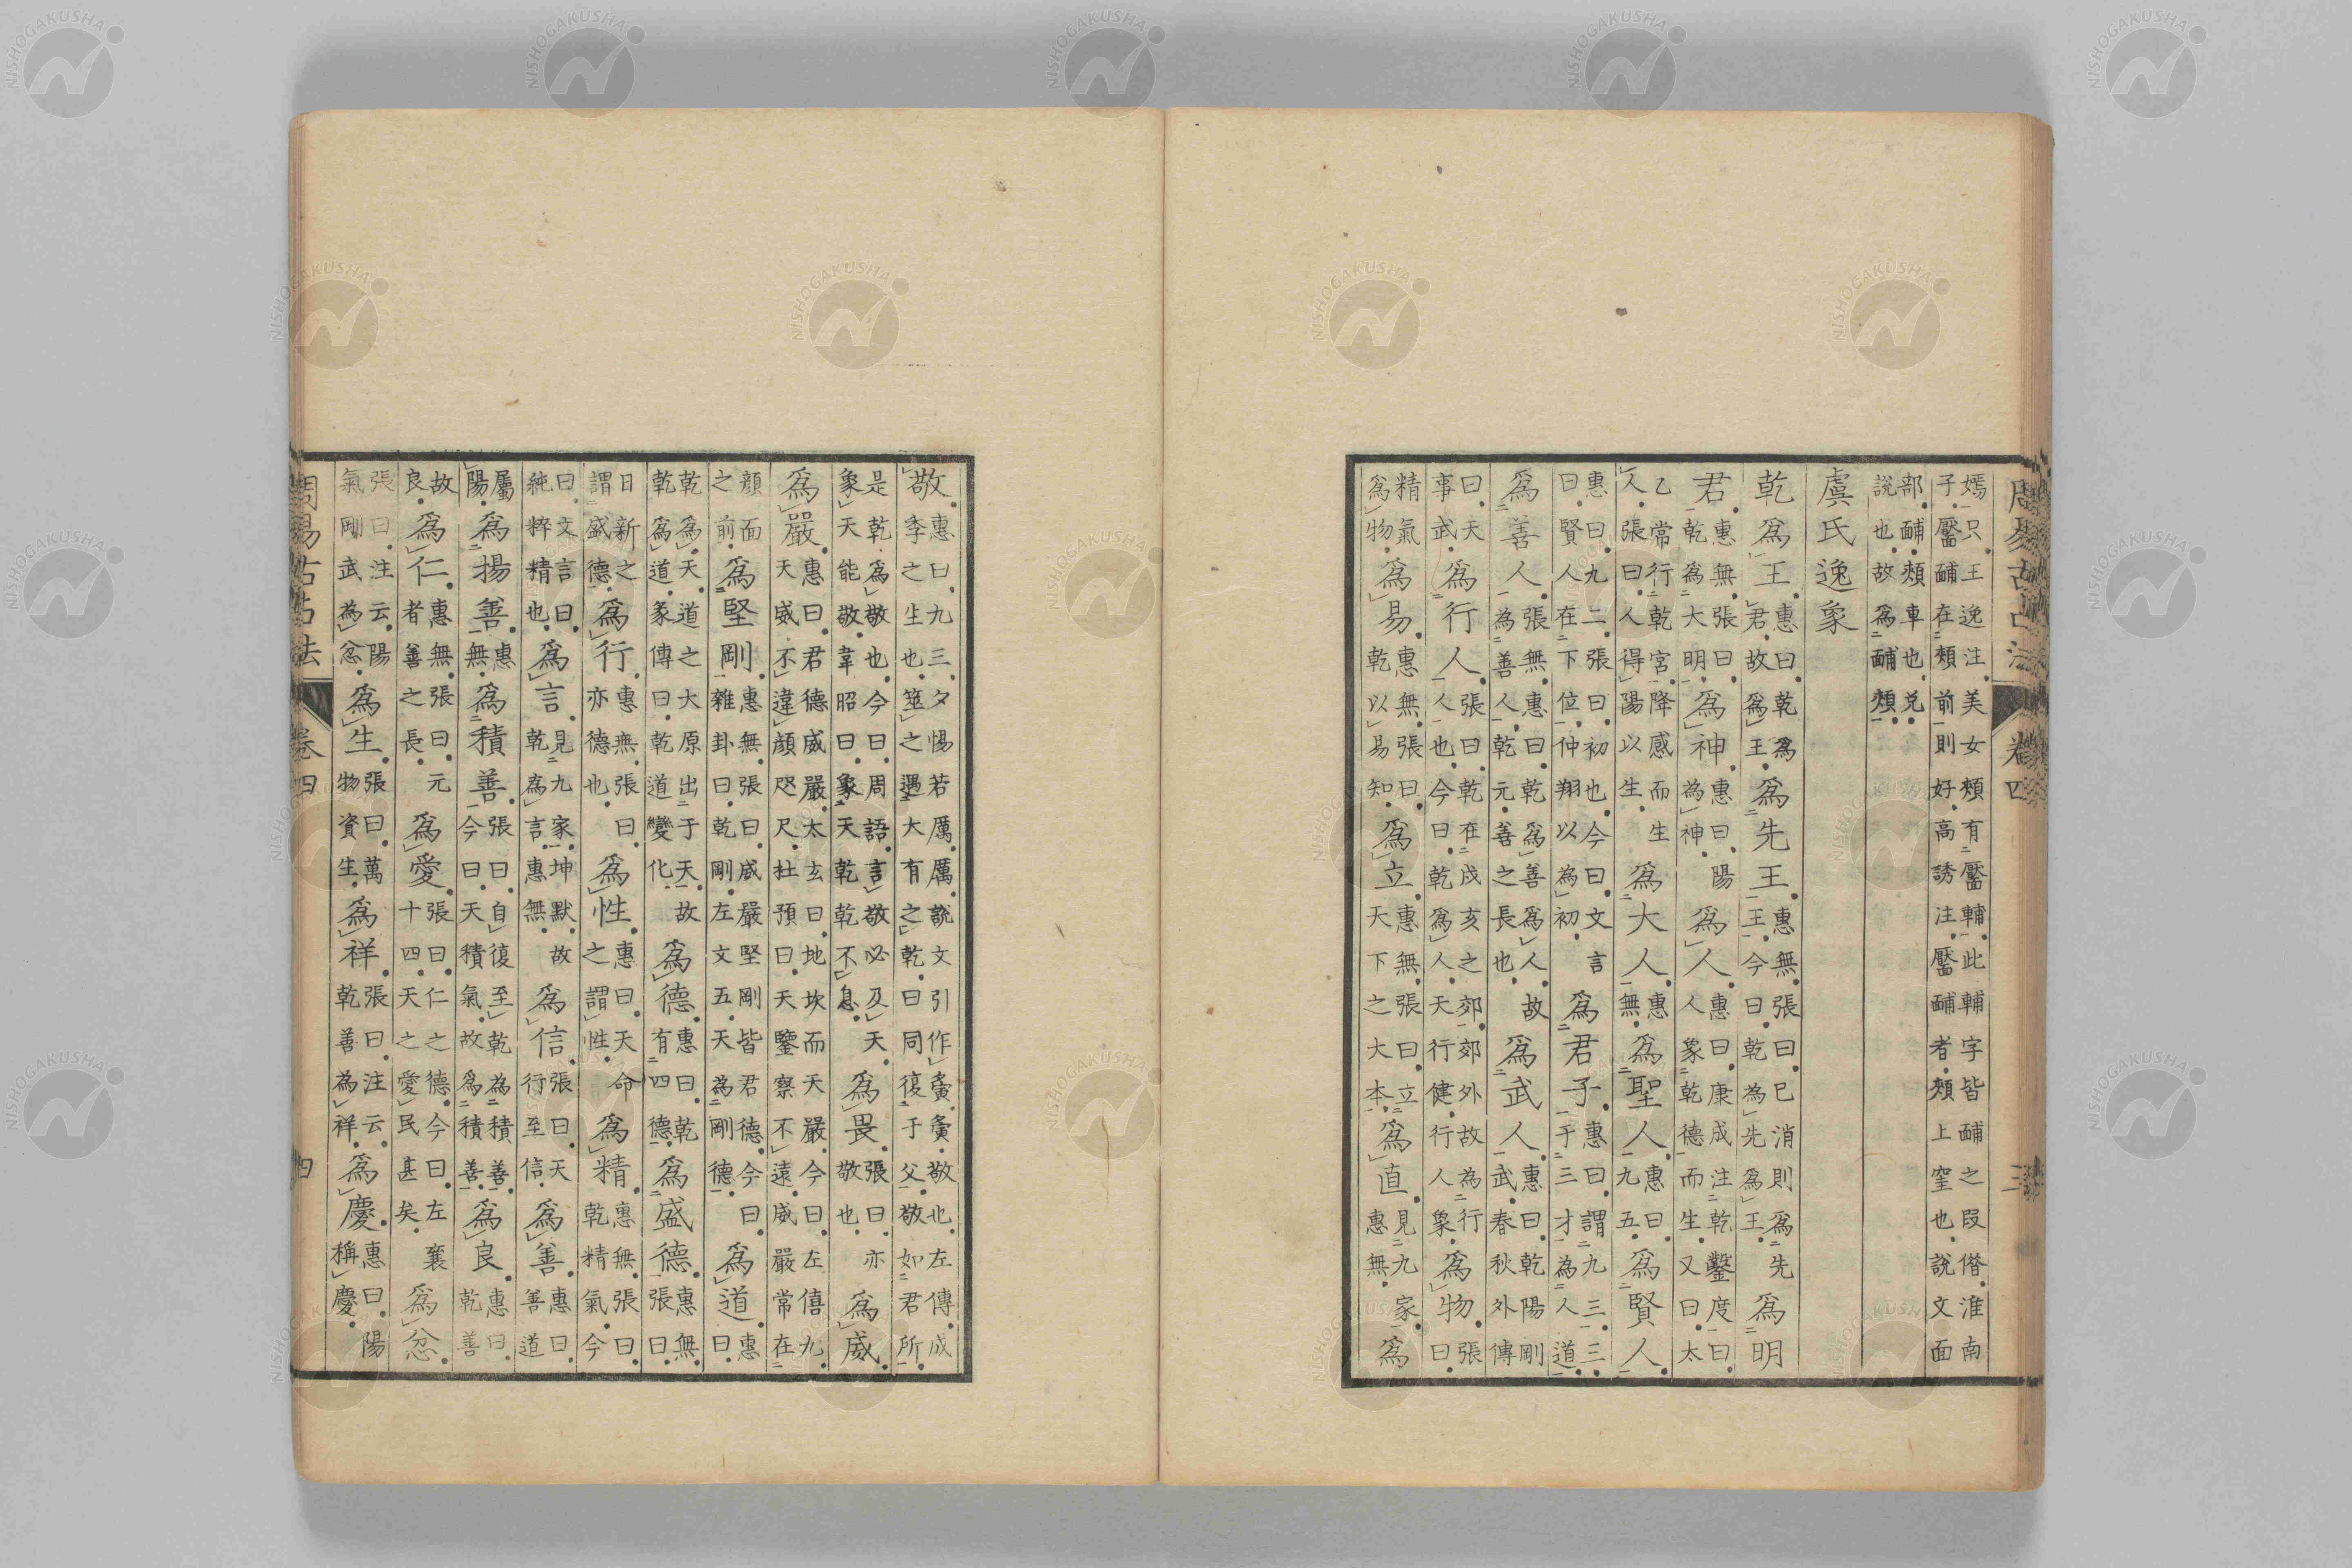 周易古占法 卷四 三
嫣只王逸注美女頰有靨輔此輔字皆酺之叚偺淮南子靨酺在頰前則好高誘注靨酺者頰上窐也說文面
部酺頰車也兌說也故爲酺頰
虞氏逸象
乾爲王惠曰乾爲君故爲王爲先王惠無張曰巳消則爲先王今曰乾為先爲王爲明
君惠無張曰乾爲大明爲神惠曰陽為神爲人惠曰康成注乾鑿度曰人象乾德而生又曰太
乙常行乾宮降感而生人張曰人得陽以生爲大人惠無爲聖人惠曰九五爲賢人
惠曰九二張曰初也今曰文言曰賢人在下位仲翔以為初爲君子惠曰謂九三三于三才為人道
爲善人張無惠曰乾爲善爲人故為善人乾元善之長也爲武人惠曰乾陽剛武春秋外傳
曰天事武爲行人張曰乾在戌亥之郊郊外故為行人人也今曰乾爲人天行健行人象爲物張曰
精氣爲物爲易惠無張曰乾以易知爲立惠無張曰立天下之大本爲直見九家惠無爲
敬惠曰九三夕惕若厲厲說文引作夤夤敬也左傳成季之生也筮之遇大有之乾曰同復于父敬如君所
是乾爲敬也今曰周語言敬必及天象天能敬韋昭曰象天乾乾不息爲畏張曰亦敬也爲威
爲嚴惠曰君德威嚴太玄曰地坎而天嚴今曰左僖九天威不違顏咫尺杜預曰天鑒察不遠威嚴常在
顏面之前爲堅剛惠無張曰威嚴堅剛皆君德今曰雜卦曰乾剛左文五天為剛德爲道惠曰
乾爲天道之大原出于天故乾爲道彖傳曰乾道變化爲德惠曰乾有四德爲盛德惠無張曰
日新之謂盛德爲行惠無張曰亦德也爲性惠曰天命之謂性爲精惠無張曰乾精氣今
曰文言曰純粹精也爲言見九家坤默故乾為言惠無爲信張曰天行至信爲善惠曰善道
屬陽爲揚善惠無爲積善張曰自復至乾為積善今曰天積氣故爲積善爲良惠曰乾善
故良爲仁惠無張曰元者善之長爲愛張曰仁之德今曰左襄十四天之愛民甚矣爲忿
張曰注云陽氣剛武為忿爲生張曰萬物資生爲祥張曰注云乾善為祥爲慶惠曰陽稱慶
周易古占法 卷四 四